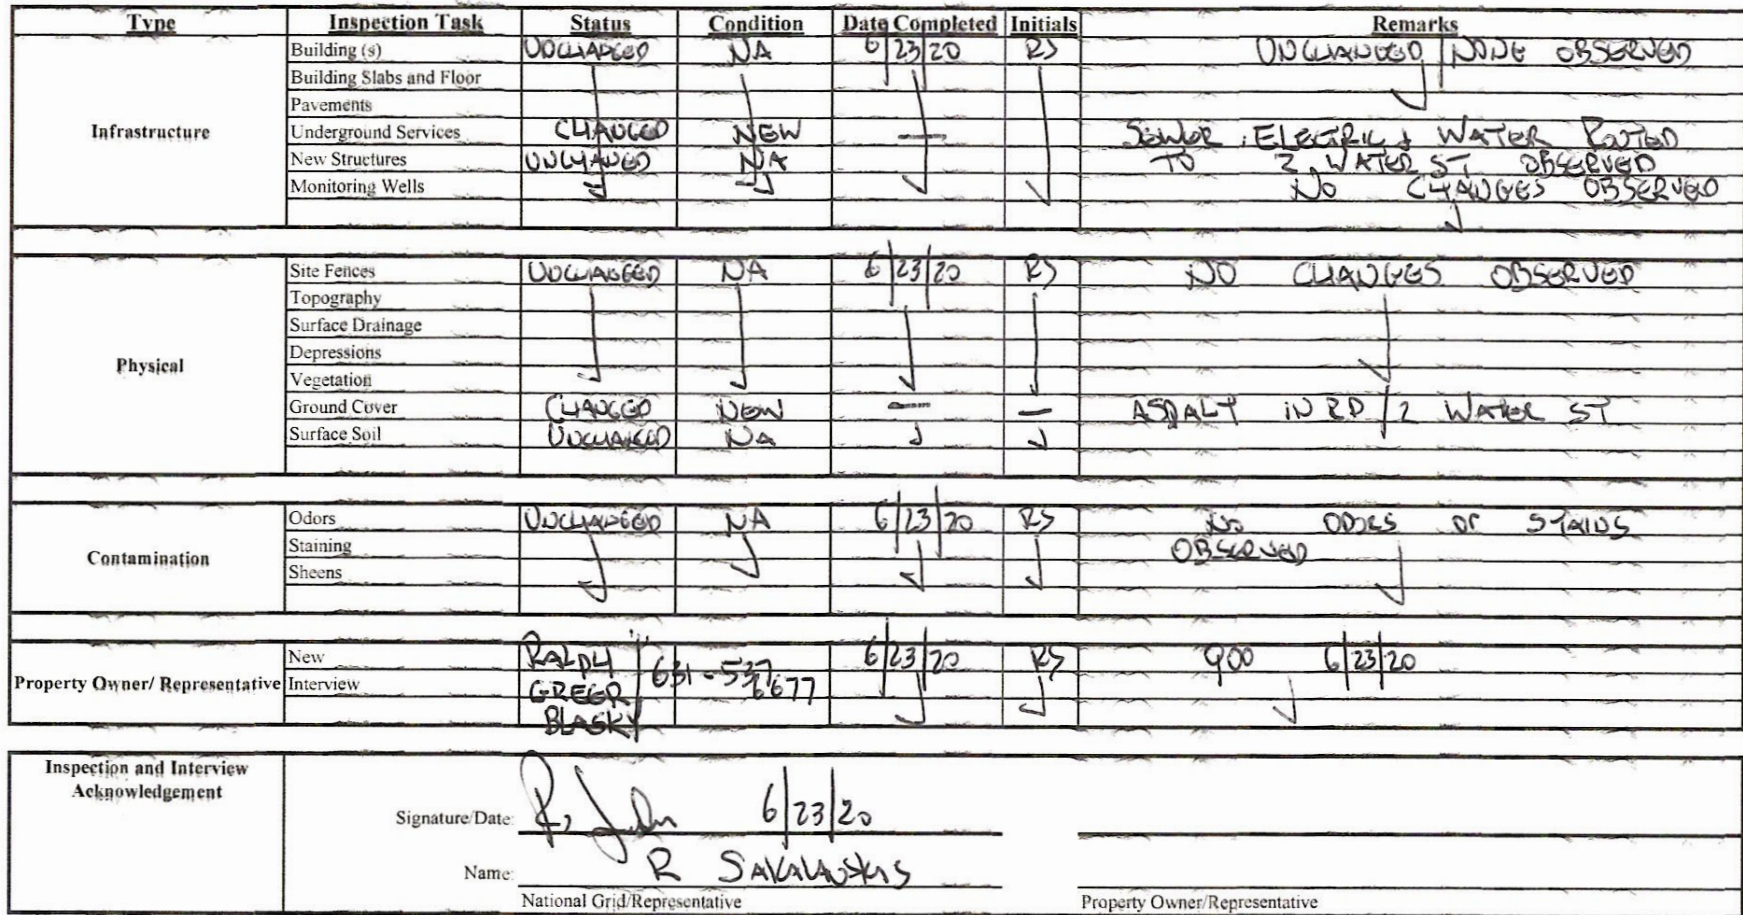 Type Inspection Task Status Condition Date Completed Initials Remarks
Infrastructure
Building (s) UNCHANGED NA 6/23/20 RS UNCHANGED / NONE OBSERVED
Building Slabs and Floor
Pavements
Underground Services CHANGED NEW — SEWER, ELECTRIC & WATER ROUTED
TO 2 WATER ST OBSERVED
New Structures UNCHANGED NA
Monitoring Wells NO CHANGES OBSERVED
Physical
Site Fences UNCHANGED NA 6/23/20 RS NO CHANGES OBSERVED
Topography
Surface Drainage
Depressions
Vegetation
Ground Cover CHANGED NEW — — ASPALT IN RD / 2 WATER ST
Surface Soil UNCHANGED NA
Contamination
Odors UNCHANGED NA 6/23/20 RS NO ODORS OR STAINS
OBSERVED
Staining
Sheens
Property Owner/ Representative
New RALPH 631-537 6/23/20 RS 900 6/23/20
Interview GREGR 6677
BLASKY
Inspection and Interview
Acknowledgement
Signature/Date: 6/23/20
Name: R SAKALAUSKIS
National Grid/Representative Property Owner/Representative